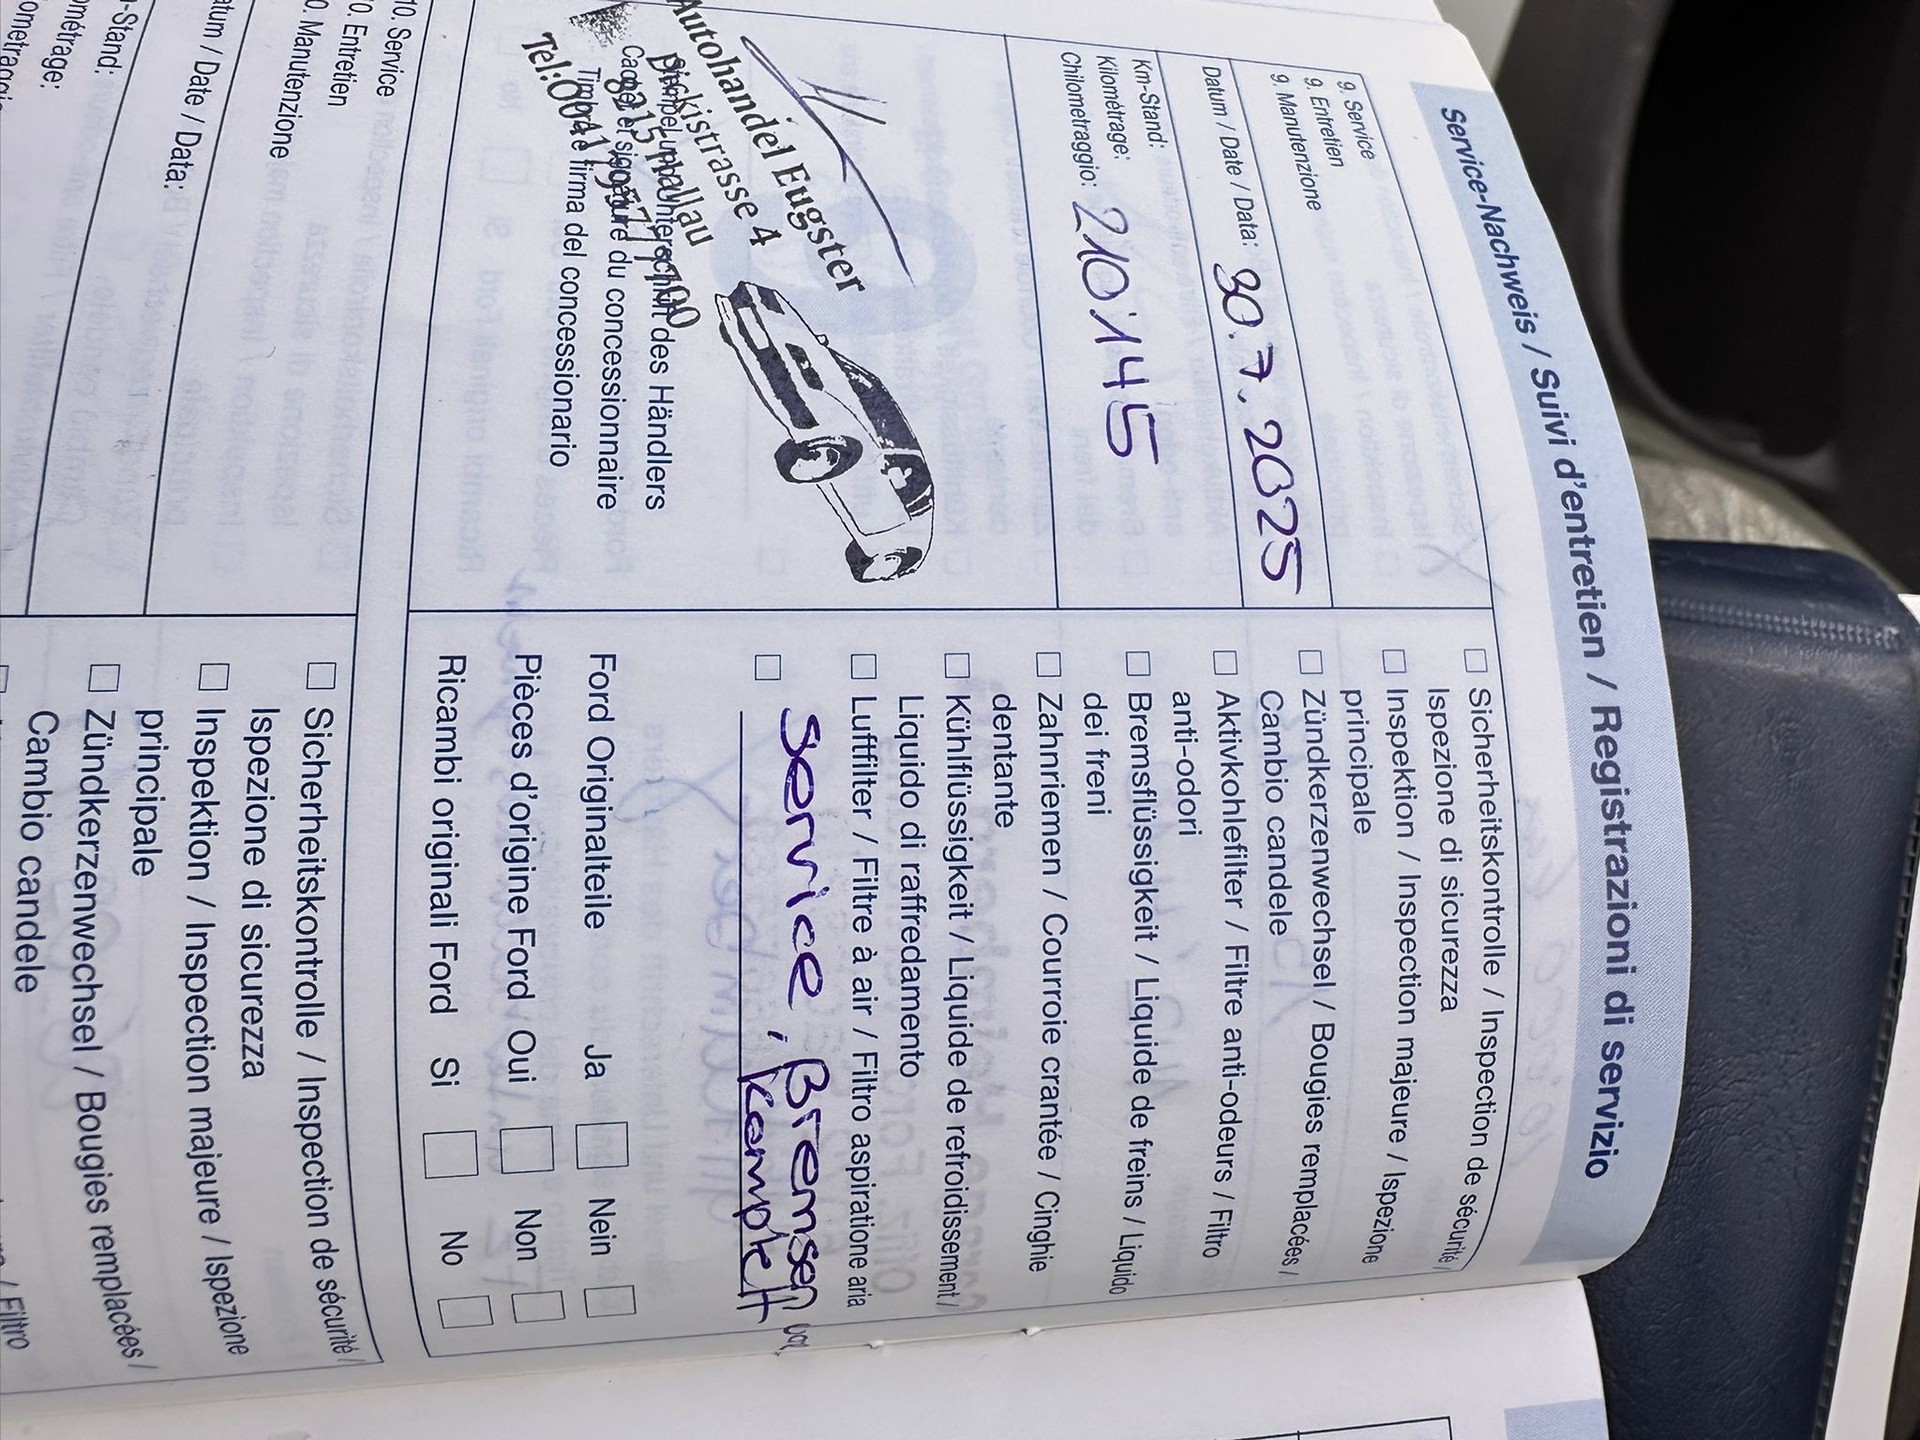 Service-Nachweis / Suivi d'entretien / Registrazioni di servizio
9. Service
9. Entretien
9. Manutenzione
Datum / Date / Data: 30.7.2025
Km-Stand:
Kilométrage:
Chilometraggio: 210'145
Autohandel Eugster
Dickistrasse 4
8215 Hallau
Stempel und Unterschrift des Händlers
Cachet et signature du concessionnaire
Timbre e firma del concessionario
☐ Sicherheitskontrolle / Inspection de sécurité /
Ispezione di sicurezza
☐ Inspektion / Inspection majeure / Ispezione
principale
☐ Zündkerzenwechsel / Bougies remplacées /
Cambio candele
☐ Aktivkohlefilter / Filtre anti-odeurs / Filtro
anti-odori
☐ Bremsflüssigkeit / Liquide de freins / Liquido
dei freni
☐ Zahnriemen / Courroie crantée / Cinghie
dentante
☐ Kühlflüssigkeit / Liquide de refroidissement /
Liquido di raffredamento
☐ Luftfilter / Filtre à air / Filtro aspiratione aria
☐ Service, Bremsen
komplett
Ford Originalteile Ja ☐ Nein ☐
Pièces d'origine Ford Oui ☐ Non ☐
Ricambi originali Ford Si ☐ No ☐
10. Service
10. Entretien
0. Manutenzione
atum / Date / Data:
-Stand:
ométrage:
☐ Sicherheitskontrolle / Inspection de sécurité /
Ispezione di sicurezza
☐ Inspektion / Inspection majeure / Ispezione
principale
☐ Zündkerzenwechsel / Bougies remplacées /
Cambio candele
/ Filtro